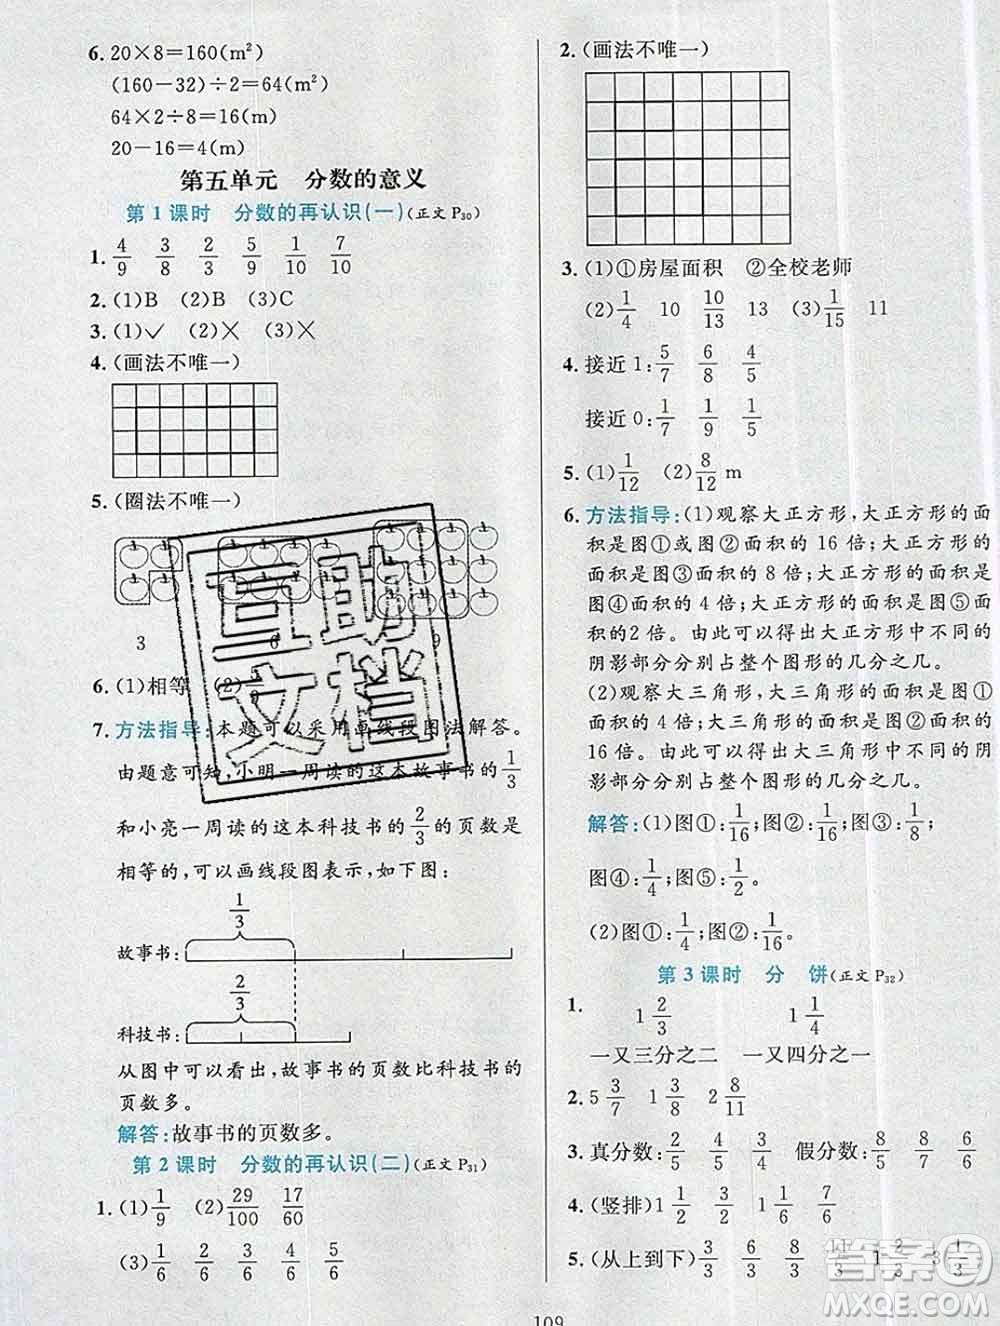 6. 20×8=160(m²)
(160-32)÷2=64(m²)
64×2÷8=16(m)
20-16=4(m)
第五单元 分数的意义
第1课时 分数的再认识(一)(正文P30)
1. 4/9 3/8 2/8 5/9 1/10 7/10
2. (1)B (2)B (3)C
3. (1)✓ (2)× (3)×
4. (画法不唯一)
5. (圈法不唯一)
3 6 9
6. (1)相等 (2)
7. 方法指导:本题可以采用画线段图法解答。
由题意可知,小明一周读的这本故事书的1/3
和小亮一周读的这本科技书的2/3的页数是
相等的,可以画线段图表示,如下图:
1/3
故事书:
2/3
科技书:
从图中可以看出,故事书的页数比科技书的
页数多。
解答:故事书的页数多。
第2课时 分数的再认识(二)(正文P31)
1. (1)1/9 (2)29/100 17/60
(3)1/6 2/6 3/6 4/6 5/6
2. (画法不唯一)
3. (1)①房屋面积 ②全校老师
(2)1/4 10 10/13 13 (3)1/15 11
4. 接近1:5/7 6/8 4/5
接近0:1/7 1/9 1/5
5. (1)1/12 (2)8/12 m
6. 方法指导:(1)观察大正方形,大正方形的面
积是图①或图②面积的16倍;大正方形的
面积是图③面积的8倍;大正方形的面积是
图④面积的4倍;大正方形的面积是图⑤面
积的2倍。由此可以得出大正方形中不同的
阴影部分分别占整个图形的几分之几。
(2)观察大三角形,大三角形的面积是图①
面积的4倍,大三角形的面积是图②面积的
16倍。由此可以得出大三角形中不同的阴
影部分分别占整个图形的几分之几。
解答:(1)图①:1/16;图②:1/16;图③:1/8;
图④:1/4;图⑤:1/2。
(2)图①:1/4;图②:1/16。
第3课时 分 饼(正文P32)
1. 1 2/3 1 1/4
一又三分之二 一又四分之一
2. 5 3/7 1 3/8 2 8/11
3. 真分数:2/5 4/5 2/6 假分数:8/5 8/8 7/6
4. (竖排)1 1/2 3/2 1 1/6 7/6
5. (从上到下)2/3 6/3 8/3 1/3 1 2/3 3 1/3
109
互助
文档
答案圈
MXQE.COM